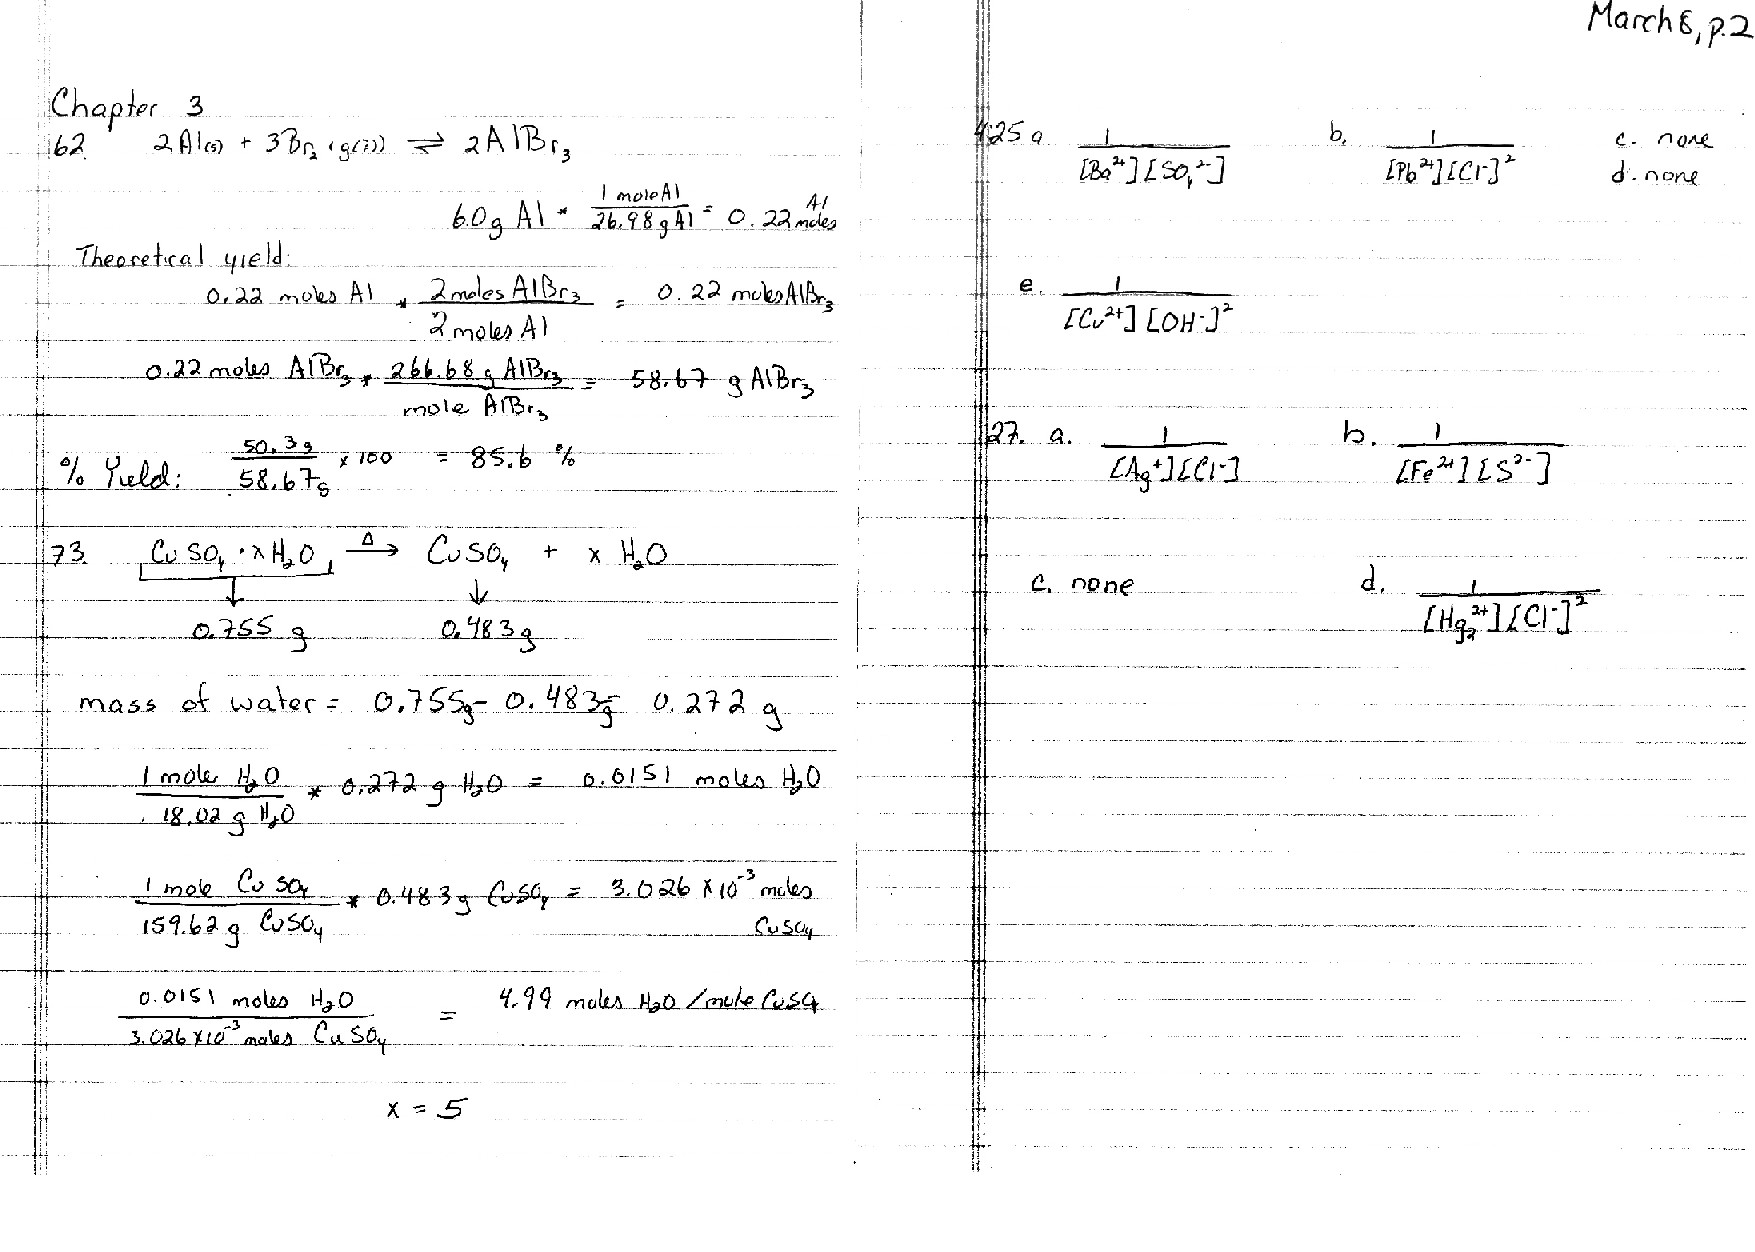 March 6, p.2
Chapter 3
62. 2Al(s) + 3Br₂ (g(l)) ⇌ 2AlBr₃
6.0g Al * 1 mole Al / 26.98 g Al = 0.22 moles Al
Theoretical yield:
0.22 moles Al * 2 moles AlBr₃ / 2 moles Al = 0.22 moles AlBr₃
0.22 moles AlBr₃ * 266.68 g AlBr₃ / mole AlBr₃ = 58.67 g AlBr₃
% Yield: 50.3g / 58.67g x 100 = 85.6 %
73. CuSO₄ · xH₂O →(Δ) CuSO₄ + x H₂O
↓ ↓
0.755 g 0.483g
mass of water = 0.755g - 0.483g = 0.272 g
1 mole H₂O / 18.02 g H₂O * 0.272 g H₂O = 0.0151 moles H₂O
1 mole CuSO₄ / 159.62 g CuSO₄ * 0.483g CuSO₄ = 3.026 x 10⁻³ moles CuSO₄
0.0151 moles H₂O / 3.026 x10⁻³ moles CuSO₄ = 4.99 moles H₂O / mole CuSO₄
x = 5
25 a 1 / [Ba²⁺][SO₄²⁻] b. 1 / [Pb²⁺][Cl⁻]² c. none
d. none
e. 1 / [Cu²⁺][OH⁻]²
27. a. 1 / [Ag⁺][Cl⁻] b. 1 / [Fe²⁺][S²⁻]
c. none d. 1 / [Hg₂²⁺][Cl⁻]²